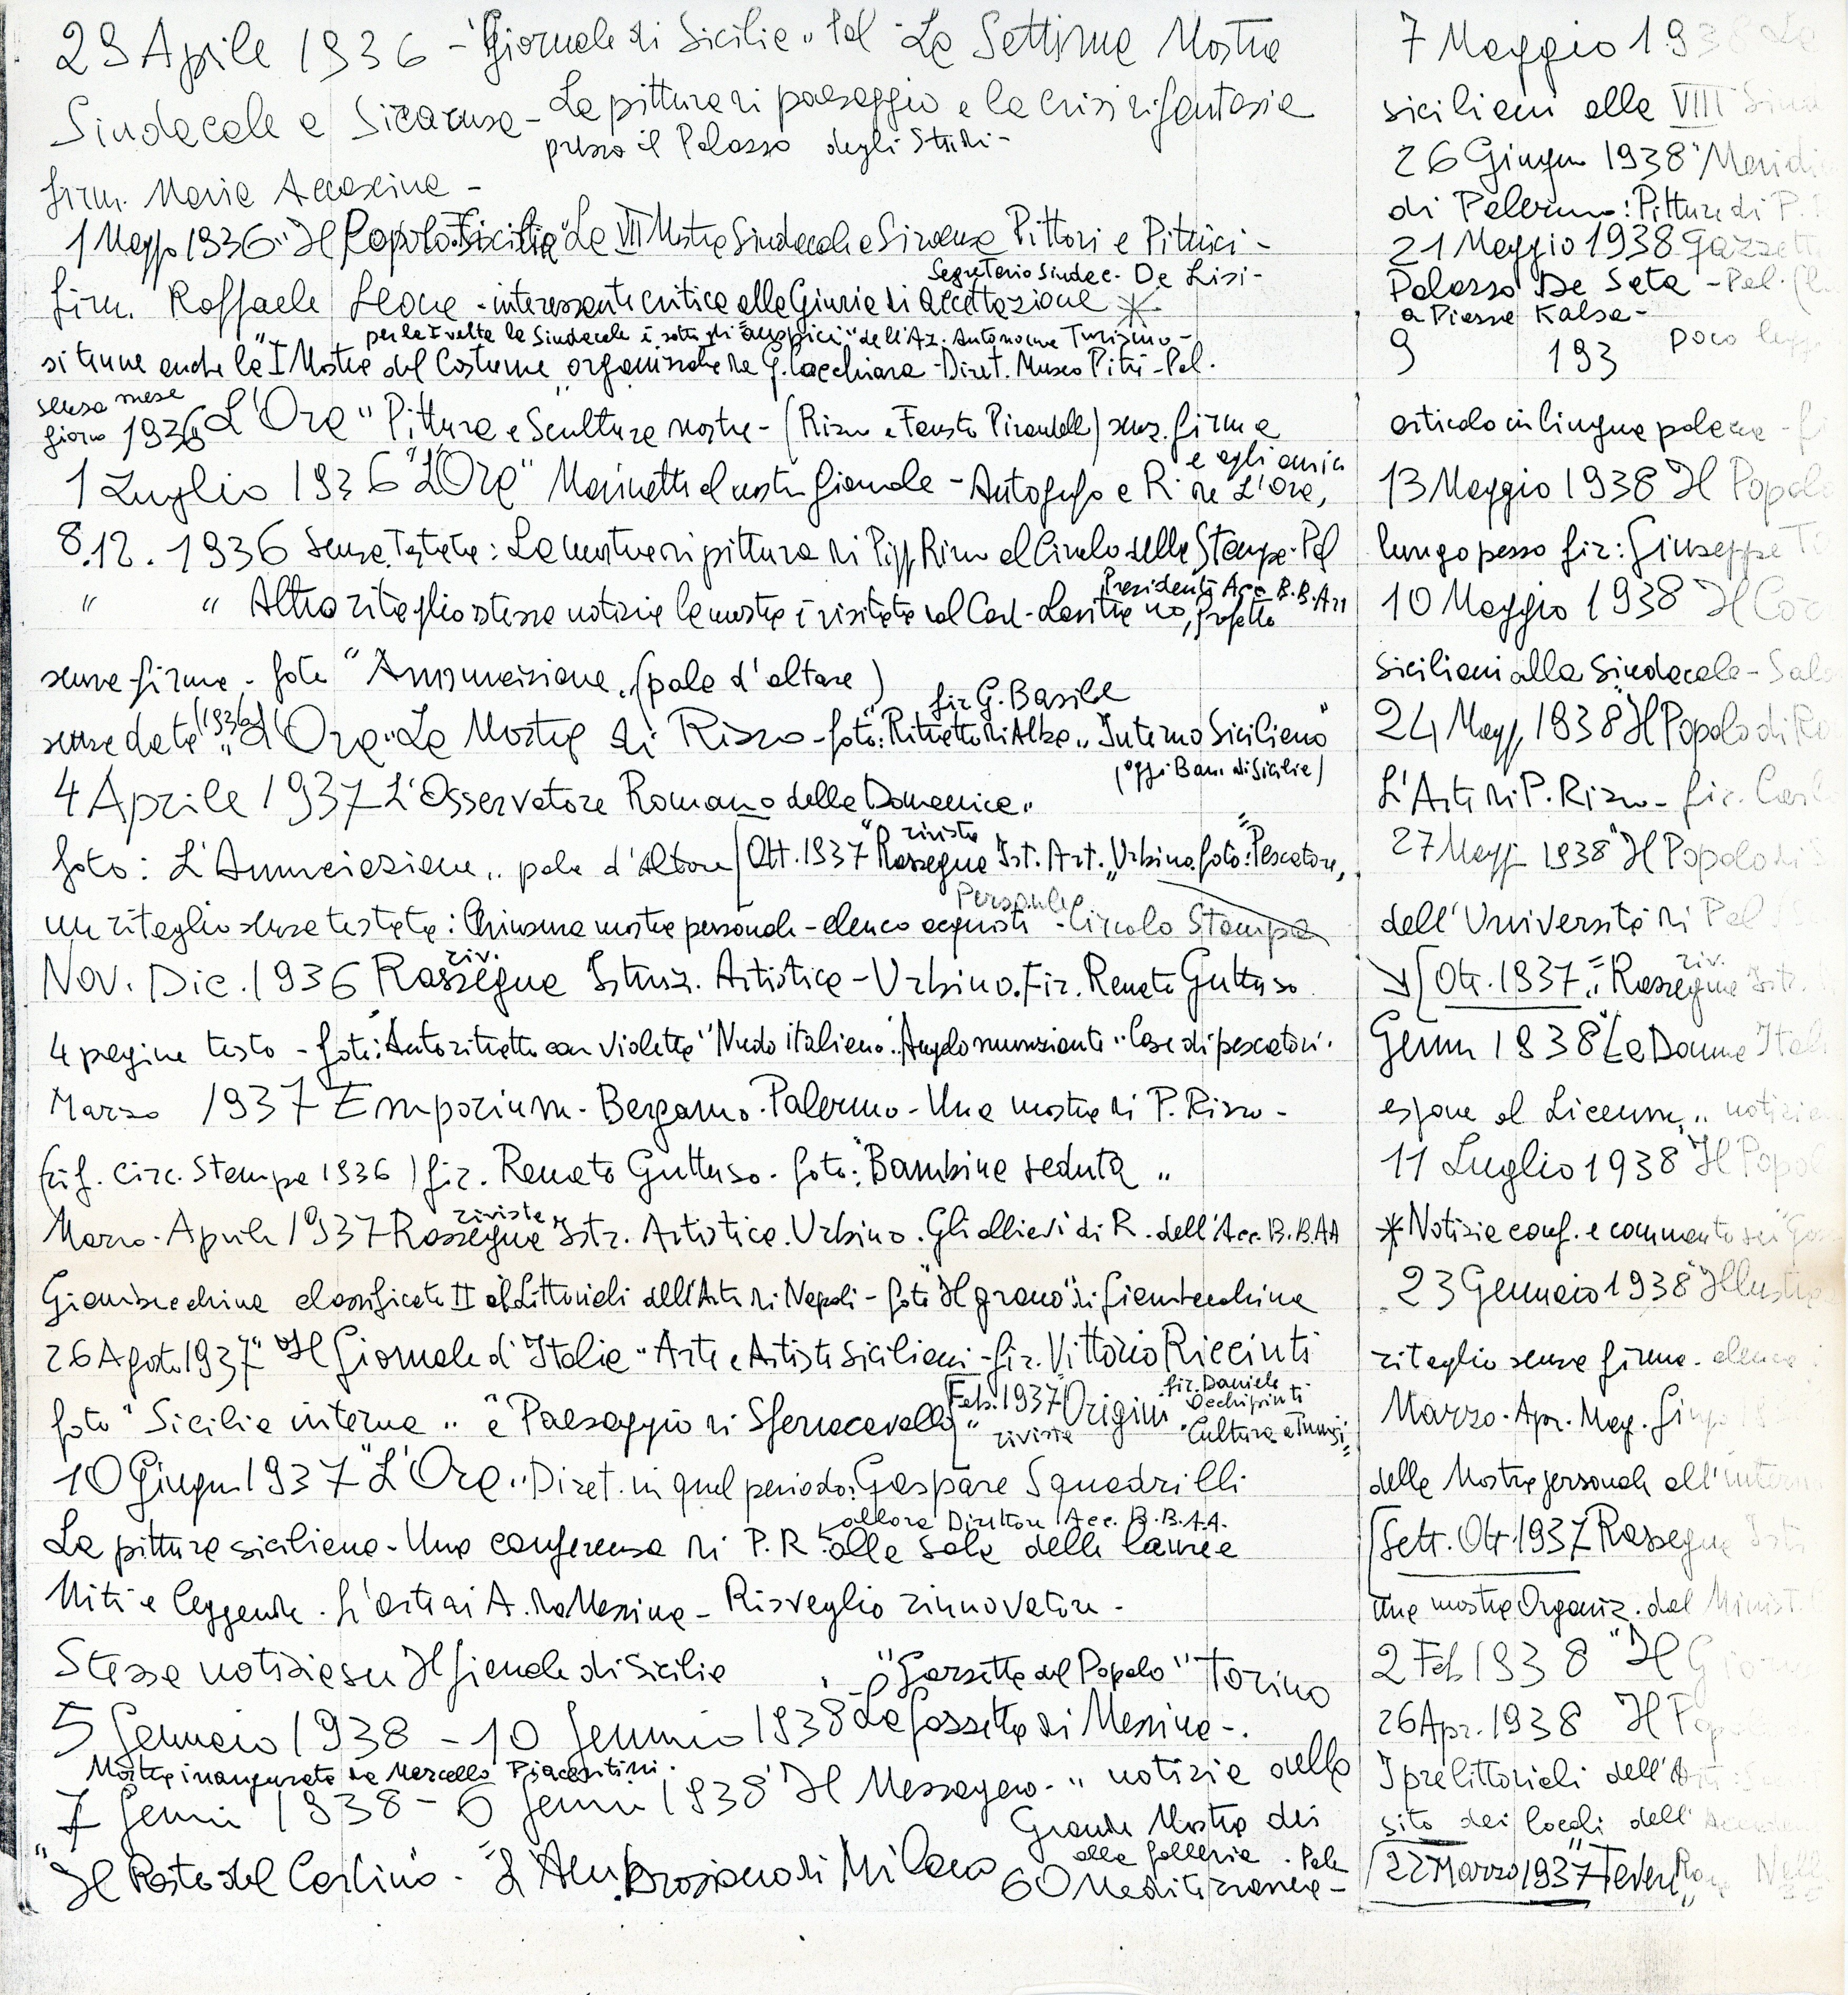 29 Aprile 1936 - "Giornale di Sicilia" Pal "La Settima Mostra
Sindacale a Siracusa - La pittura di paesaggio e la crisi di fantasia
presso il Palazzo degli Studi -
firm. Maria Accascina -
1 Magg 1936 "Il Popolo di Sicilia" La VII Mostra Sindacale e Siracusa Pittori e Pittrici -
Segretario Sindac. De Lisi -
firm. Raffaele Leone - interessante critica alla Giuria di accettazione *
per la I volta la Sindacale è sotto gli "auspici" dell'Az. Autonoma Turismo -
si tenne anche la "I Mostra del Costume" organizzata da G. Cocchiara - Diret. Museo Pitrè - Pal.
senza mese
giorno 1936 L'Ora "Pittura e Scultura nostra - (Rizzo e Fausto Pirandello) senz. firma
e agli amici
1 Luglio 1936 "L'Ora" Marinetti al nostro giornale - Autografo e R. de L'Ora,
8.12. 1936 Senza Testata: La mostra di pittura di Pippo Rizzo al Circolo della Stampa - Pal
Presidente Acc. B.B.Arti
" " Altro ritaglio stessa notizia la mostra è visitata dal Card. Lavitrano, prefetto
senza firma - foto "Annunciazione" (pala d'altare)
fir G. Basile
senza data (1936) "L'Ora" La Mostra di Rizzo - foto: Ritratto di Alba "Interno Siciliano"
(oggi Banc. di Sicilia)
4 Aprile 1937 L'Osservatore Romano della Domenica"
foto: L'Annunciazione" pala d'Altare [Ott. 1937 "Rassegna rivista Ist. Art." Urbino foto: "Pescatore,
Personale
un ritaglio senza testata: Chiusura mostra personale - elenco acquisti - Circolo Stampa
riv.
Nov. Dic. 1936 Rassegna Istruz. Artistica - Urbino. Fir. Renato Guttuso
4 pagine testo - foto: "Autoritratto con violetta" "Nudo italiano" "Angelo nunziante" "Case di pescatori"
Marzo 1937 Emporium - Bergamo. Palermo - Una mostra di P. Rizzo -
(rif. Circ. Stampa 1936) fir. Renato Guttuso. foto: "Bambina seduta"
rivista
Marzo. Aprile 1937 Rassegna Istr. Artistica. Urbino. Gli allievi di R. dell'Acc. B.B.AA
Giambecchina classificato II ai Littoriali dell'Arte di Napoli - foto "Il grano" di Giambecchina
26 Agosto 1937 "Il Giornale d'Italia" Arte e Artisti Siciliani - fir. Vittorio Riccinti
foto "Sicilia interna" e "Paesaggio di Sferracavallo" [Feb. 1937 Origini rivista fir. Daniele Occhipinti
10 Giugn 1937 "L'Ora" Diret. in quel periodo: Gaspare Squadrilli
allora Direttore Acc. B.B.A.A.
La pittura siciliana - Una conferenza di P.R. alla Sala delle lauree
Miti e leggende. L'arte di A. da Messina - Risveglio rinnovatore -
Stessa notizia su Il Giornale di Sicilia "Gazzetta del Popolo" Torino
5 Gennaio 1938 - 10 Gennaio 1938 La Gazzetta di Messina -
Mostra inaugurata da Marcello Piacentini.
7 Genn 1938 - 6 Genn 1938 Il Messaggero " notizie della
Grande Mostra dei
"Il Resto del Carlino" - "L'Ambrosiano di Milano
alla Galleria. Pal
60 Mediterranea -
7 Maggio 1938 La
siciliani alla VIII Sind
26 Giugn 1938 "Meridi
di Palermo: Pitture di P.
21 Maggio 1938 Gazzett
Palazzo De Seta - Pal.
a Piazza Kalsa -
9 193 poco legg
articolo in lingua polacca -
13 Maggio 1938 Il Popolo
lungo pezzo fir: Giuseppe
10 Maggio 1938 Il Cor
siciliani alla Sindacale -
24 Magg. 1938 "Il Popolo di Ro
L'Arte di P. Rizzo - fir. Carl
27 Magg 1938 "Il Popolo di S
dell'Università di Pal.
riv.
[Ott. 1937" Rassegna Istr.
Genn 1938 "La Donna Ital
espone al Liceum" notizie
11 Luglio 1938 "Il Popol
* Notizie conf. e commento sui
23 Gennaio 1938 "Illustr
ritaglio senza firma - elenco
Marzo. Apr. Mag. Giugn
della Mostra personale all'intern
[Sett. Ott. 1937 Rassegna Ist
una mostra Organiz. dal Minist.
2 Feb 1938 "Il Giorn
26 Apr. 1938 Il Pop
I prelittoriali dell'Arte
sito dei locali dell'
[22 Marzo 1937 "Tevere" Roma